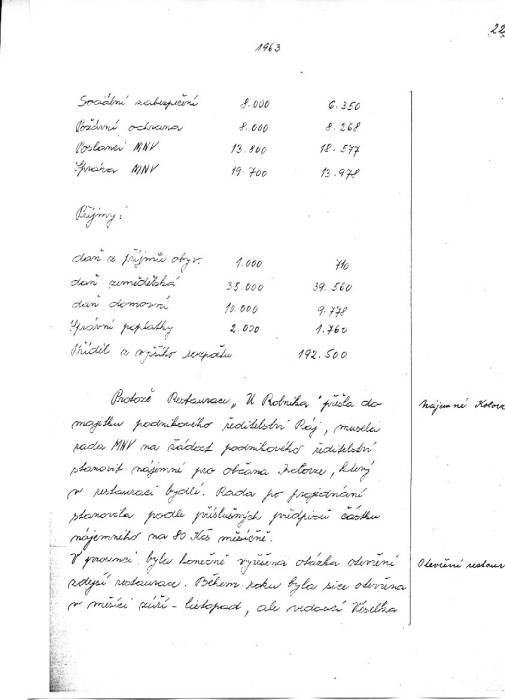 22
1963
Sociální zabezpečení 8.000 6.350
Požární ochrana 8.000 8.268
Poslanci MNV 13.800 18.577
Správa MNV 19.700 13.978
Příjmy:
daň z příjmů obyv. 1.000 710
daň zemědělská 35.000 39.560
daň domovní 10.000 9.778
Správní poplatky 2.000 1.760
Příděl z vyššího rozpočtu 192.500
Protože Restaurace „U Rolnika" přešla do
majetku podnikového ředitelství Ráj, musela
rada MNV na žádost podnikového ředitelství
stanovit nájemné pro občana, který
v restauraci bydlí. Rada po projednání
stanovila podle příslušných předpisů částku
nájemného na 80 Kčs měsíčně.
V prosinci byla konečně vyřešena otázka otevření
zdejší restaurace. Během roku byla sice otevřena
v měsíci září - listopad, ale vedoucí
nájemné
Otevření restaur